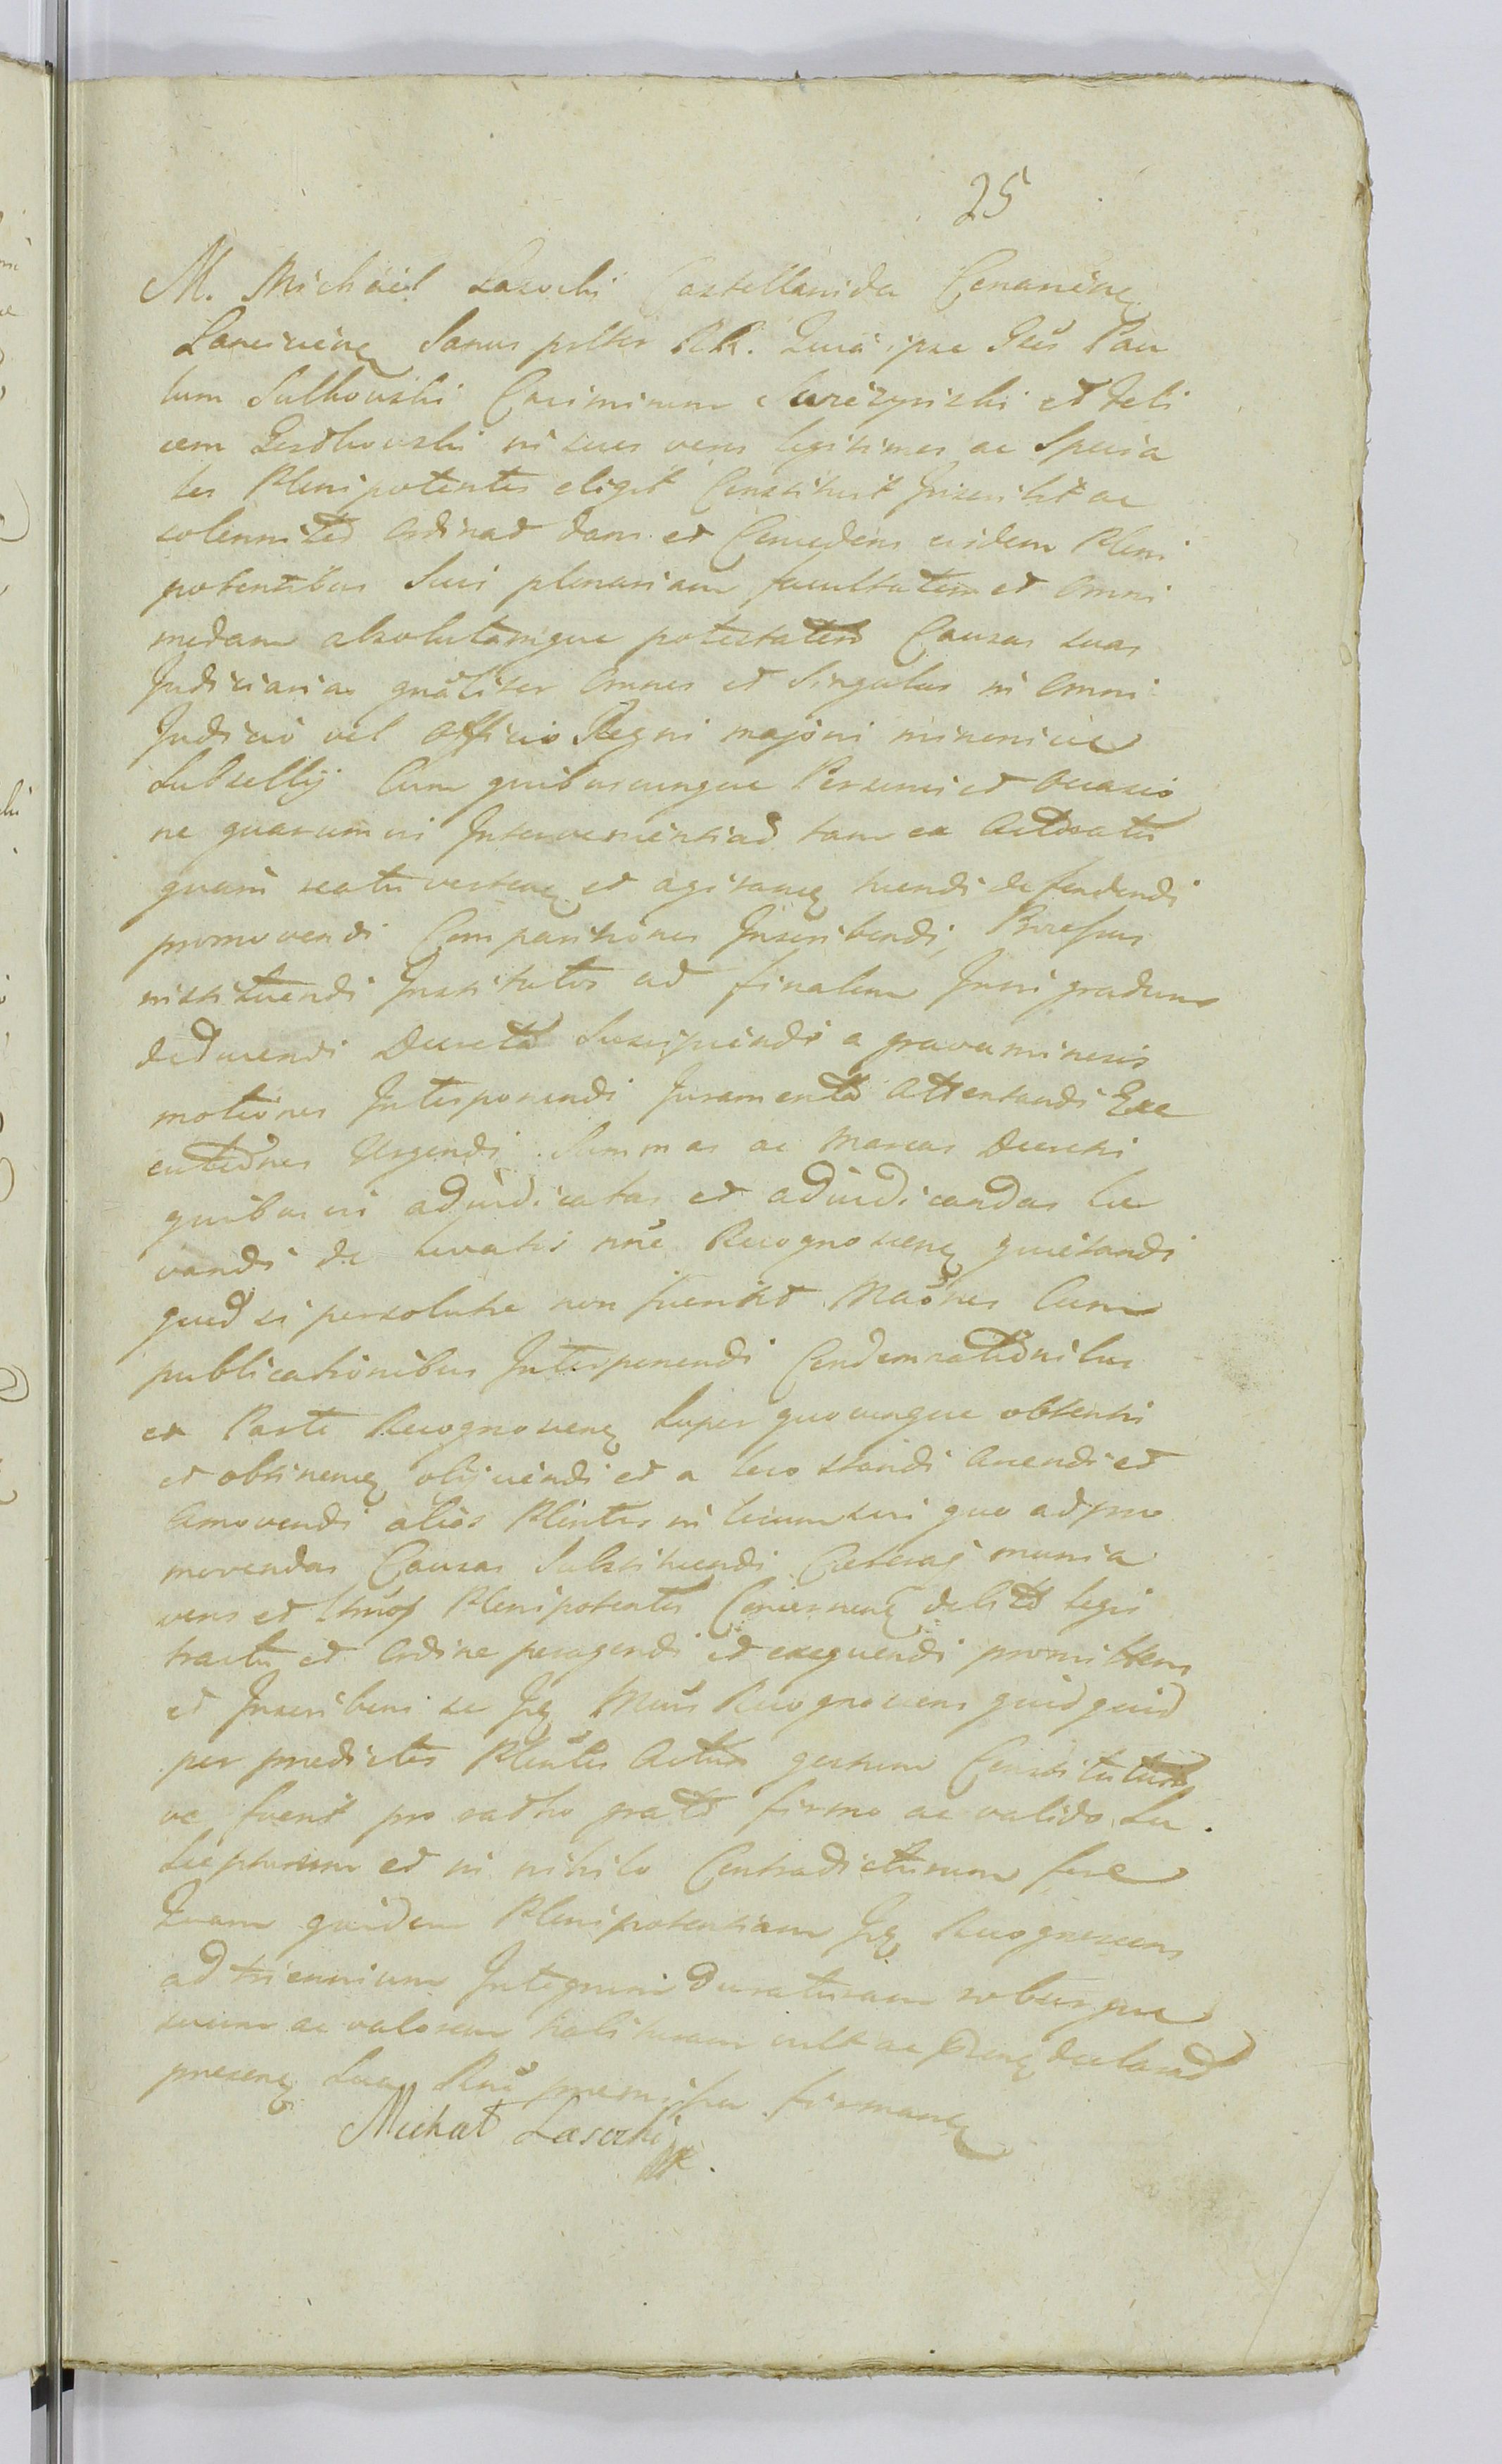 25
M. Michael Lasocki Castellanida Conariens
Lanciciens Sanus pltter RR. Quia ipse Gsus Pau
lum Sulkowski Casimirum Swiezynski et Feli
cem Gostkowski in suos veros legitimos ac Specia
les Plenipotentes eligit Constituit Inscribit ac
solenniter ordinat dans et Concedens eisdem Pleni
potentibus Suis plenariam facultatem et omni
modam absolutamque potestatem Causas suas
Judiciarias gnaliter omnes et Singulas in omni
Judicio vel officio Regni majori minorive
Subsellij Cum quibusvcunque Personis et occasio
ne quarumvis Intervenientiad tam ex Actoratu
quam reatu verten et agitan tuendi defendendi
promovendi Comparitiones Inscribendi, Processus
instituendi Institutos ad finalem Juris gradum
deducendi Decreta Suscipiendi a gravaminosis
motiones Interponendi Juramenta Attentandi Exe
cutiones Urgendi Summas ac Marcas Decretis
quibusvis adjudicatas et adjudicandas le
vandi de levatis nne Recognoscen quietandi
quod si persolutae non fuerint Maones Cum
publicationibus Interponendi Condemnationibus
ex Parte Recognoscen Super quocunque obtentis
et obtinen obijciendi et a loco standi Arcendi et
Amovendi alios Plentes in locum sui quo ad pro
movendas Causas Substituendi Caeteraq munia
veros et Plenipotentes Concernen debito legis
tractu et ordine peragendi et exequendi promittens
et Inscribens se Ips Mcus Recognoscens quidquid
per predictos Plentes Actum gestum Constitutum
ve fuerit pro ratho grato firmo ac valido Su
Scepturum et in nihilo Contradicturum fore
Quam quidem Plenipotentiam Ips Recognoscens
ad triennium Integrum duraturam roburque
suum ac valorem habituram vult ac declarat
presen Sua Rne premissa firman
Michał Lasocki
mp.